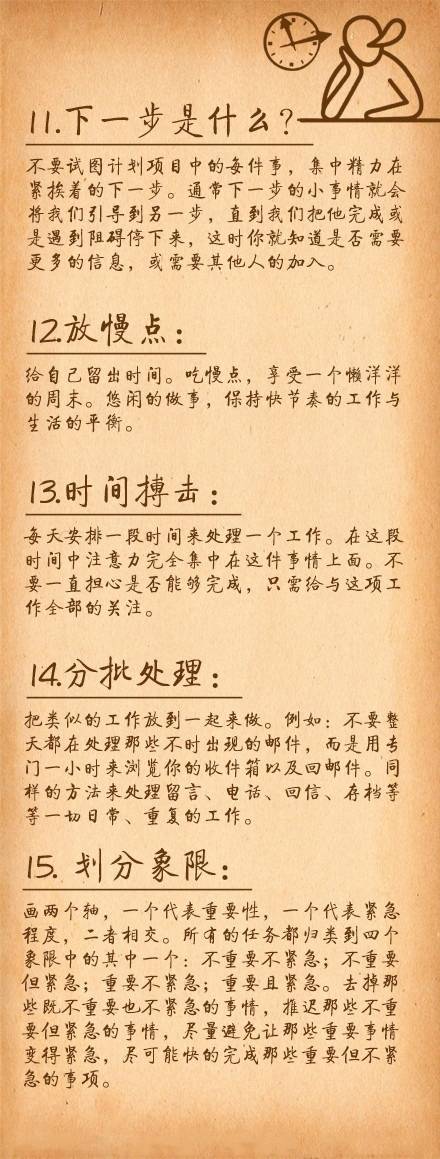 11.下一步是什么？
不要试图计划项目中的每件事，集中精力在
紧挨着的下一步。通常下一步的小事情就会
将我们引导到另一步，直到我们把他完成或
是遇到阻碍停下来，这时你就知道是否需要
更多的信息，或需要其他人的加入。
12.放慢点：
给自己留出时间。吃慢点，享受一个懒洋洋
的周末。悠闲的做事，保持快节奏的工作与
生活的平衡。
13.时间搏击：
每天安排一段时间来处理一个工作。在这段
时间中注意力完全集中在这件事情上面。不
要一直担心是否能够完成，只需给与这项工
作全部的关注。
14.分批处理：
把类似的工作放到一起来做。例如：不要整
天都在处理那些不时出现的邮件，而是用专
门一小时来浏览你的收件箱以及回邮件。同
样的方法来处理留言、电话、回信、存档等
等一切日常、重复的工作。
15. 划分象限：
画两个轴，一个代表重要性，一个代表紧急
程度，二者相交。所有的任务都归类到四个
象限中的其中一个：不重要不紧急；不重要
但紧急；重要不紧急；重要且紧急。去掉那
些既不重要也不紧急的事情，推迟那些不重
要但紧急的事情，尽量避免让那些重要事情
变得紧急，尽可能快的完成那些重要但不紧
急的事项。